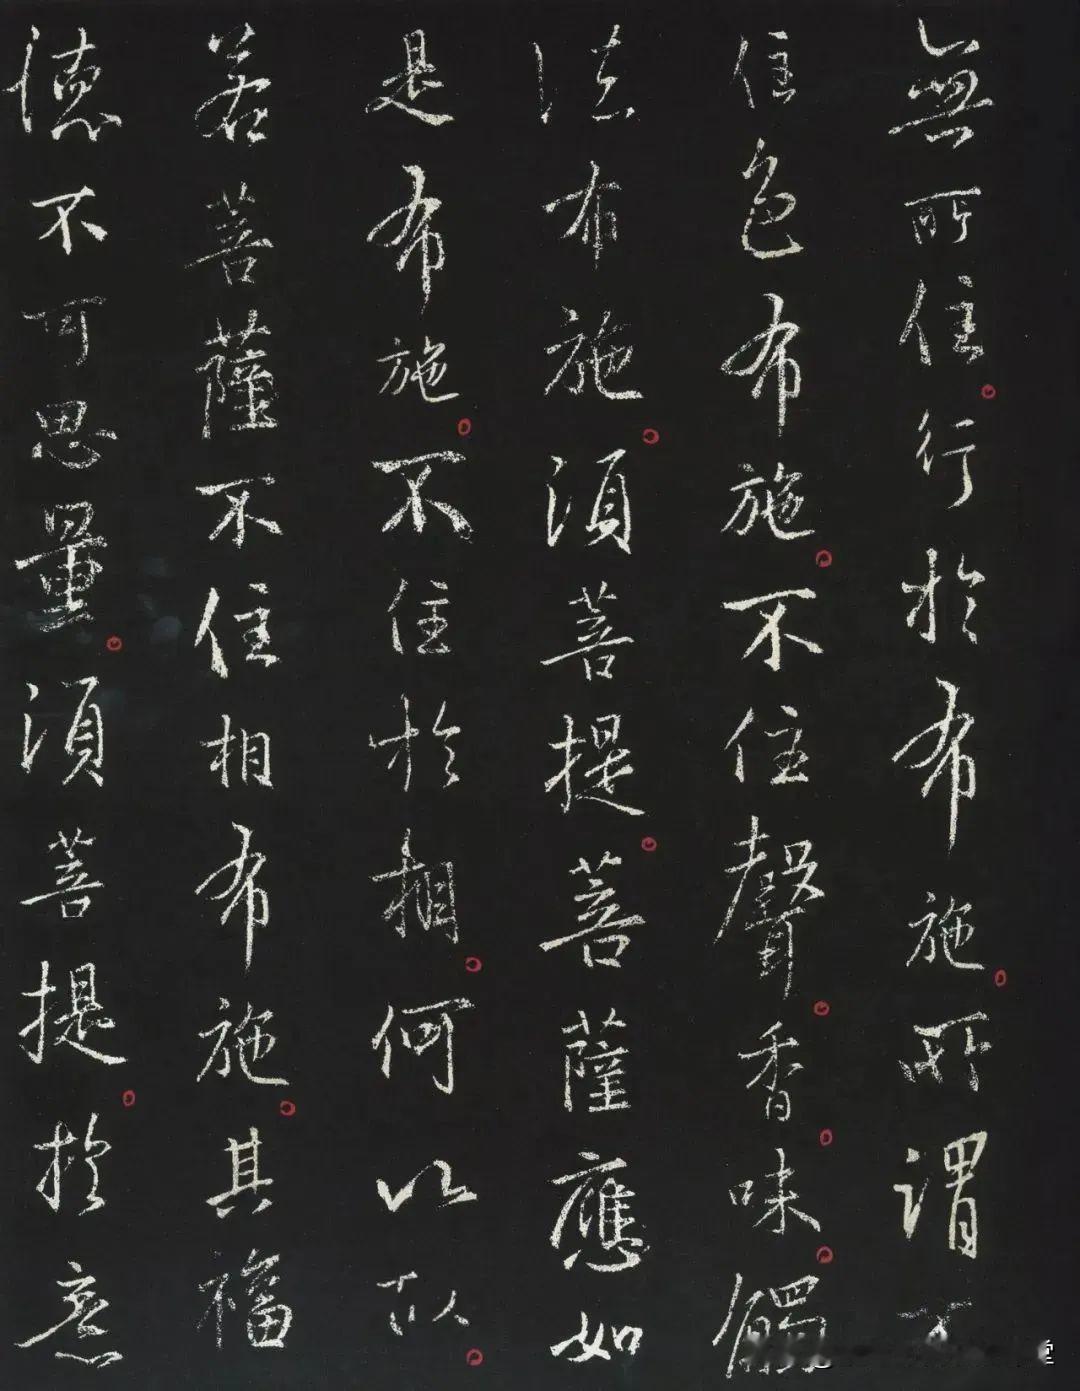 無所住。行於布施。所謂不
住色布施。不住聲。香。味。觸
法布施。須菩提。菩薩應如
是布施。不住於相。何以故。
若菩薩不住相布施。其福
德不可思量。須菩提。於意